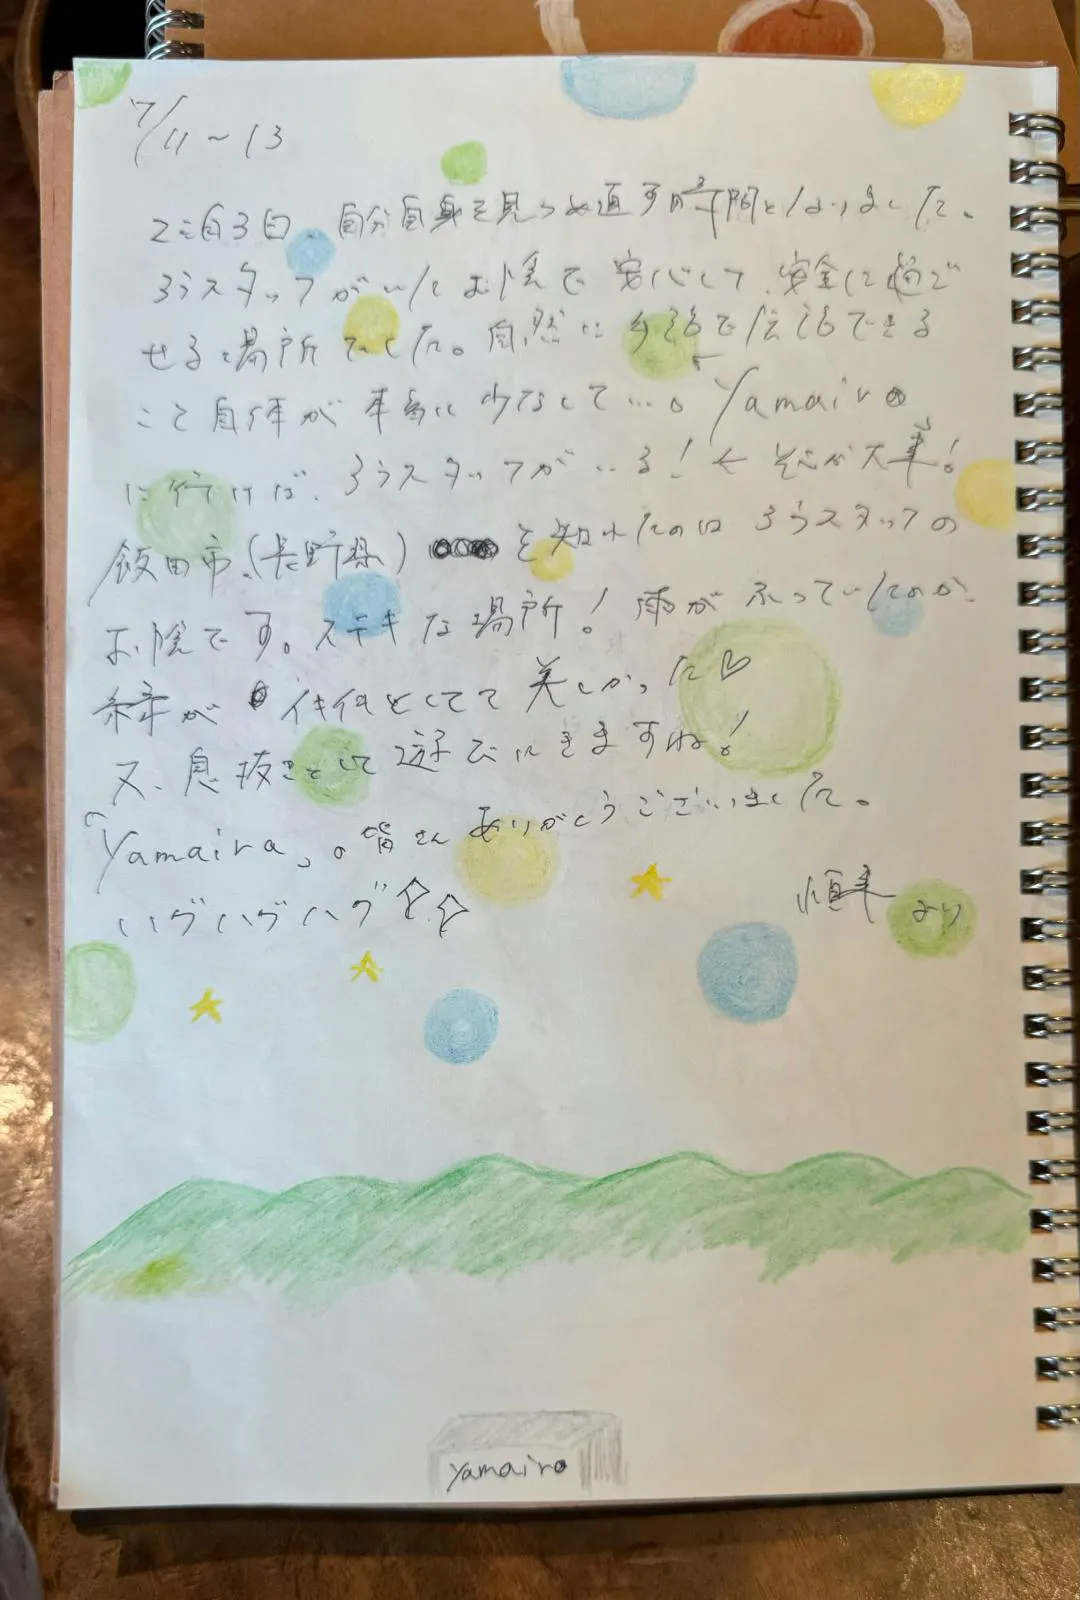 7/11～13
2泊3日、自分自身を見つめ直す時間となりました。
ろうスタッフがいたお陰で安心して、安全に過ご
せる場所でした。自然に手話で会話できる
こと自体が本当に少なくて…。Yamairo
に行けば、ろうスタッフがいる！←それが大事！
飯田市、(長野県)を知れたのはろうスタッフの
お陰です。ステキな場所！雨がふっていたのか、
緑がイキイキとしてて美しかった♡
又、息抜きとして遊びにきますね！
「Yamairo」の皆さんありがとうございました。
ハグハグハグ☆☆
より
yamairo